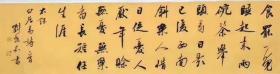 食罷一覺
睡起來兩
甌茶舉
頭看日影
已復西南
斜樂人惜
日促憂人
厭年賒
無憂無樂
者長短任
生涯
白居易詩
書